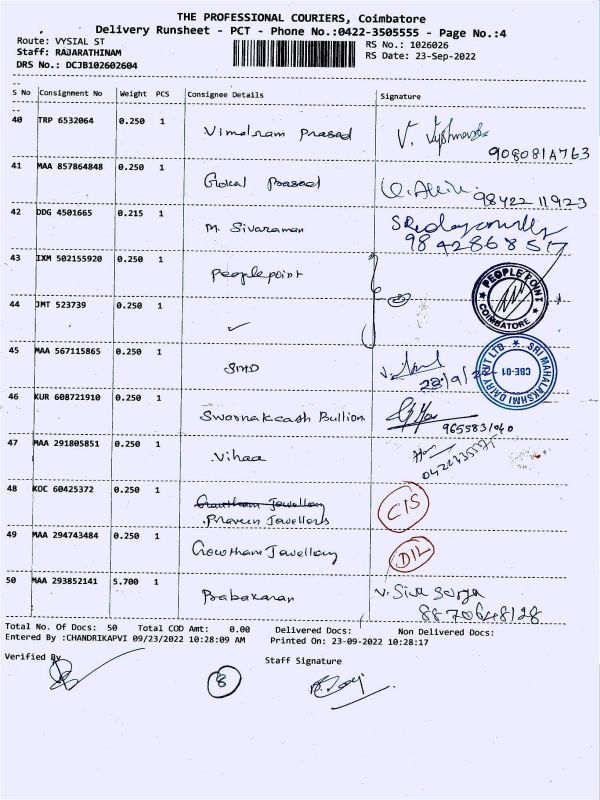 THE PROFESSIONAL COURIERS, Coimbatore
Delivery Runsheet - PCT - Phone No.:0422-3505555 - Page No.:4
Route: VYSIAL ST
RS No.: 1026026
Staff: RAJARATHINAM
RS Date: 23-Sep-2022
DRS No.: DCJB102602604
S No Consignment No Weight PCS Consignee Details Signature
40 TRP 6532064 0.250 1 Vimalram Prasad V.
41 MAA 857864848 0.250 1 Gokul Prasad 9842211923
42 DDG 4501665 0.215 1 M. Sivaraman 9842868517
43 IXM 502155920 0.250 1 Peoplepoint
★ PEOPLE POINT ★ COIMBATORE
44 JMT 523739 0.250 1 ✓
45 MAA 567115865 0.250 1 SMD
★ SRI MAHALAKSHMI DAIRY PVT LTD CBE-01
46 KUR 608721910 0.250 1 Swarnakcash Bullion
47 MAA 291805851 0.250 1 Vihaa
48 KOC 60425372 0.250 1 Gowtham Jewellery
Praveen Jewellers
49 MAA 294743484 0.250 1 Gowtham Jewellery D/L
50 MAA 293852141 5.700 1 Prabakaran V. Siva Surya
8870648128
Total No. Of Docs: 50 Total COD Amt: 0.00 Delivered Docs: Non Delivered Docs:
Entered By :CHANDRIKAPVI 09/23/2022 10:28:09 AM Printed On: 23-09-2022 10:28:17
Verified By
Staff Signature
8